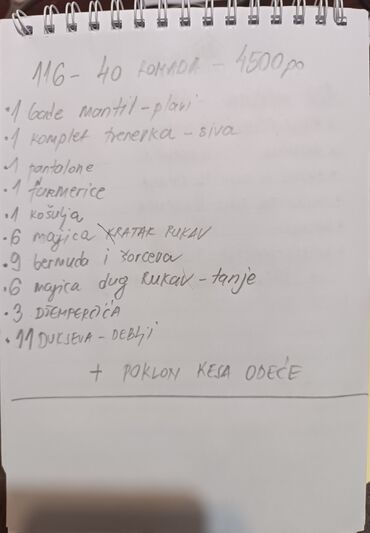 116 - 40 KOMADA - 4500
• 1 bade mantil - plavi
• 1 komplet trenerka - siva
• 1 pantalone
• 1 farmerice
• 1 košulja
• 6 majica KRATAK RUKAV
• 9 bermuda i šorceva
• 6 majica dug RUKAV - tanje
• 3 DŽEMPERČIĆA
• 11 DUKSEVA - DEBLJI
+ POKLON KESA ODEĆE